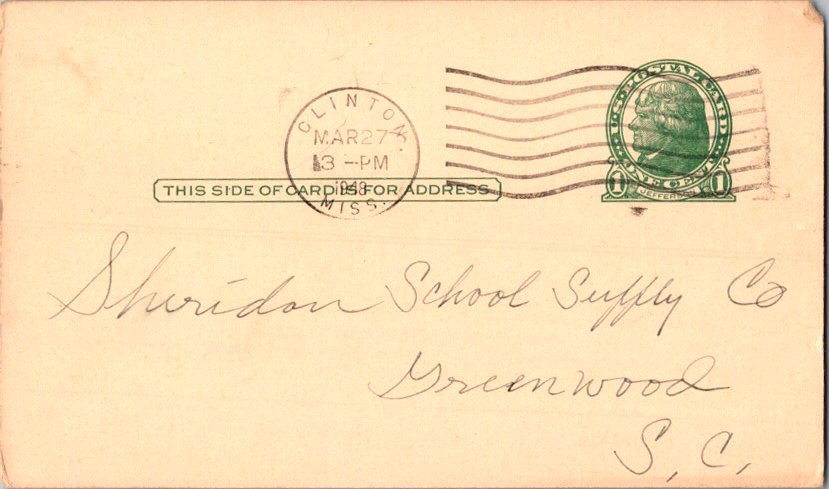 CLINTON.
MAR 27
3-PM
1948
MISS.
U.S. POSTAL CARD
ONE CENT
1 1
JEFFERSON
THIS SIDE OF CARD IS FOR ADDRESS
Sheridan School Supply Co
Greenwood
S. C.